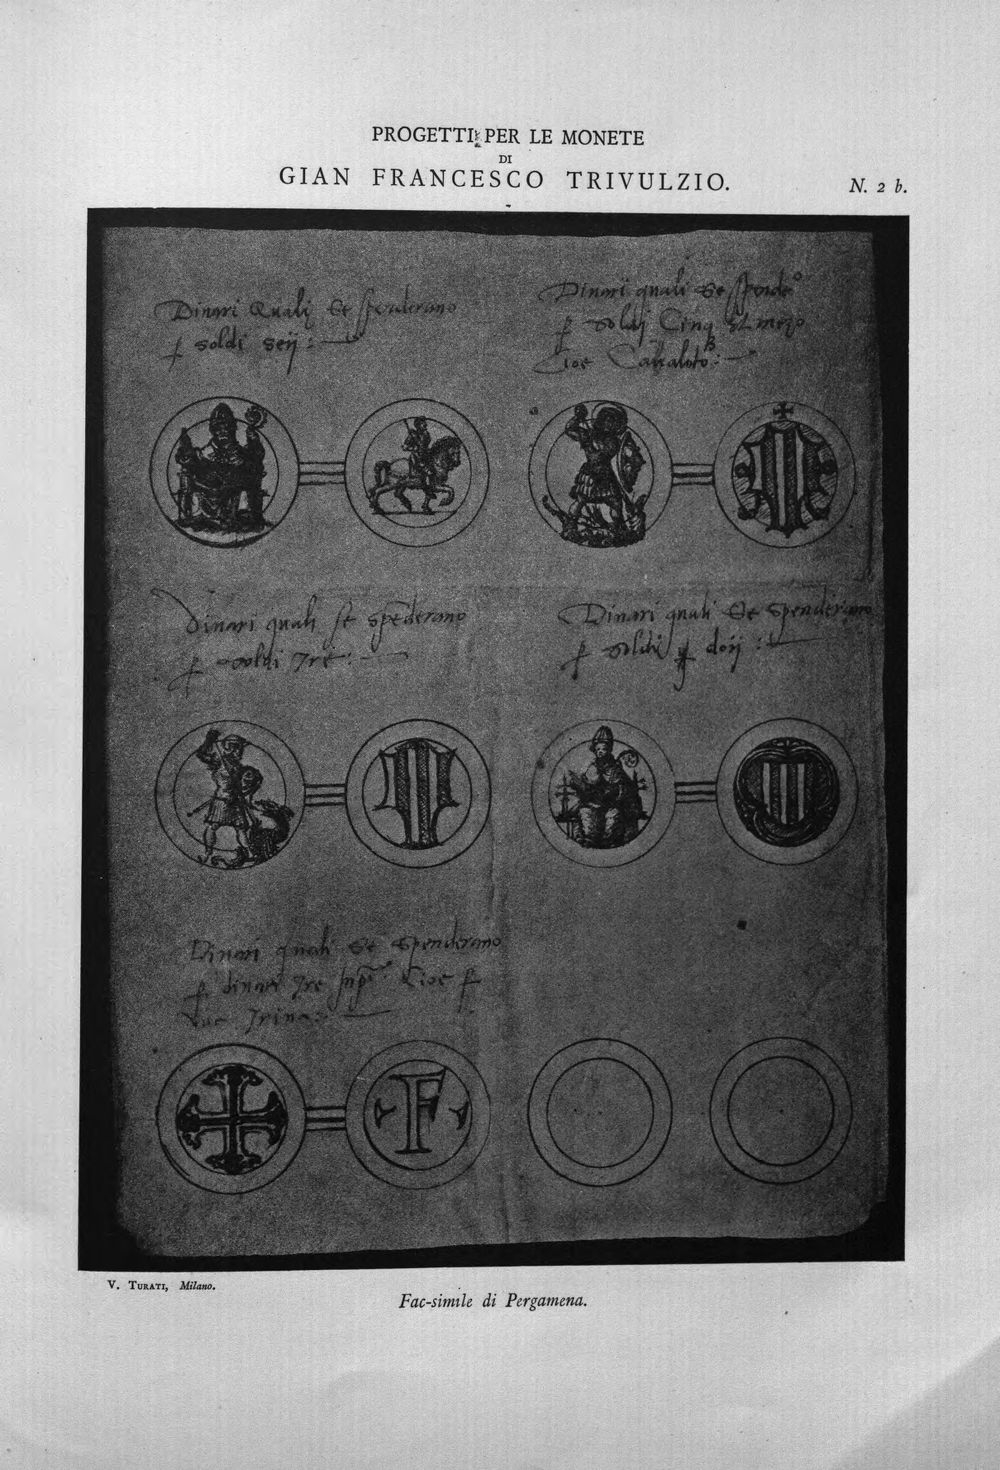 PROGETTI PER LE MONETE
DI
GIAN FRANCESCO TRIVULZIO.
N. 2 b.
Dinari Quali Se spenderano
p soldi seij :
Dinari quali Se spendeo
p soldi Cinq Et mezo
Cioe
Dinari quali se spēderano
p soldi Tre :
Dinari quali Se spenderano
p soldi doij :
Dinari quali Se spenderano
p dinari Tre Cioe p
F
V. TURATI, Milano.
Fac-simile di Pergamena.